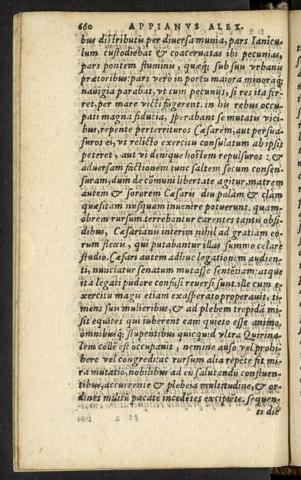 660 APPIANVS ALEX.
bus distributis per diuersa munia, pars Ianicu
lum custodiebat & coaceruatas ibi pecunias,
pars pontem fluminis, quæq; sub suis vrbanis
prætoribus: pars verò in portu maiora minoraq;
nauigia parabat, vt cum pecunijs, si res ita fir-
ret, per mare victi fugerent. in his rebus occu-
pati magna fiducia, sperabant se mutatis vici-
bus, repente perterrituros Cæsarem, aut persua-
suros ei, vt relicto exercitu consulatum ab ipsis
peteret, aut vi deniq; hostem repulsuros: &
aduersam factionem nunc saltem secum consen-
suram, dum de cōmuni libertate agitur. matrem
autem & sororem Cæsaris diu palàm & clàm
quæsitam nusquam inuenire potuerunt. quam-
obrem rursum terrebantur carentes tantis obsi-
dibus, Cæsarianis interim nihil ad gratiam eo-
rum flexis, qui putabantur illas summo celare
studio. Cæsari autem adhuc legationem audien-
ti, nunciatur senatum mutasse sentētiam: atque
ita legati pudore confusi reuersi sunt. ille cum e-
xercitu magis etiam exasperato properauit, ti-
mens suis mulieribus, & ad plebem trepidā mi-
sit equites qui iuberent eam quieto esse animo.
omnibusq; stupentibus quicquid vltra Quirina-
lem collē est occupauit, nemine auso vel prohi-
bere vel congredi: ac rursum alia repēte fit mi-
ra mutatio, nobilibus ad eū salutandū confluen-
tibus, accurrente & plebeia multitudine, & or-
dines militū pacate incedētes excipiēte. sequen-
ti die